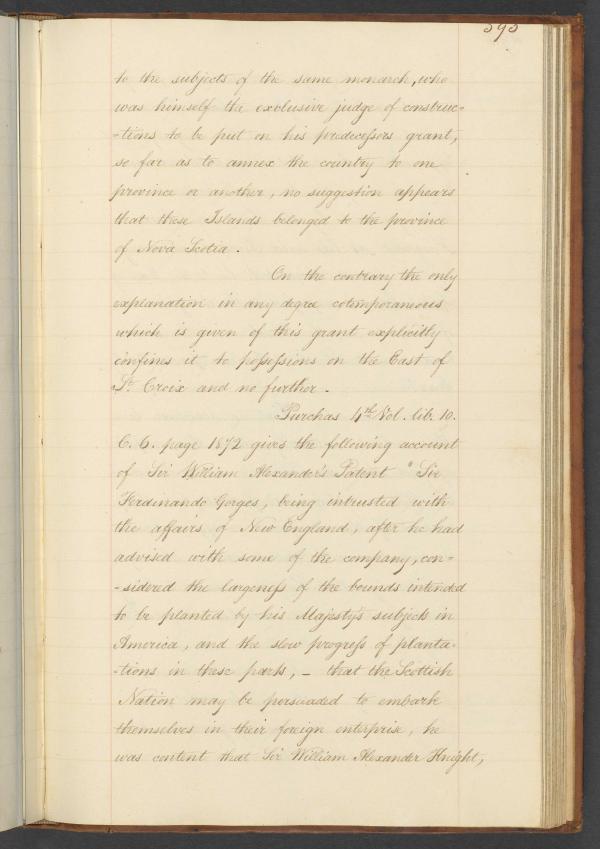 595
to the subjects of the same monarch, who
was himself the exclusive judge of construc-
-tions to be put on his predecessors grant,
so far as to annex the country to one
province or another, no suggestion appears
that these Islands belonged to the province
of Nova Scotia.
On the contrary the only
explanation in any degree cotemporaneous
which is given of this grant explicitly
confines it to possessions on the East of
St. Croix and no further.
Purchas 4th Vol. lib. 10.
C. 6. page 1872 gives the following account
of Sir William Alexander's Patent "Sir
Ferdinando Gorges, being intrusted with
the affairs of New England, after he had
advised with some of the company, con-
-sidered the largeness of the bounds intended
to be planted by his Majesty's subjects in
America, and the slow progress of planta-
-tions in these parts, - that the Scottish
Nation may be persuaded to embark
themselves in their foreign enterprise, he
was content that Sir William Alexander Knight,